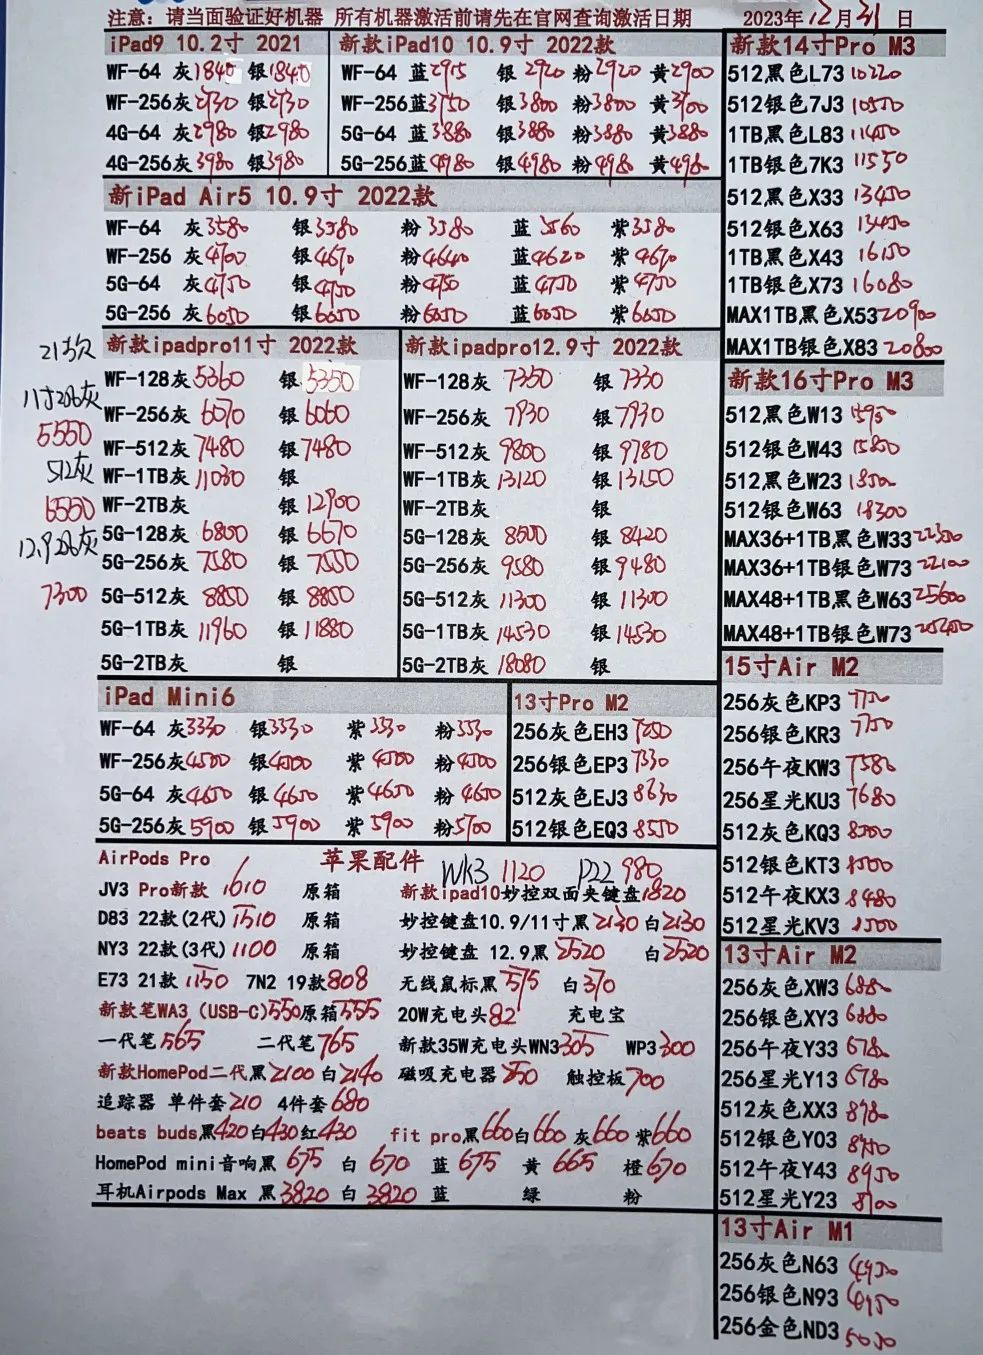 注意：请当面验证好机器 所有机器激活前请先在官网查询激活日期 2023年12月31日
iPad9 10.2寸 2021
WF-64 灰1840 银1840
WF-256灰2730 银2730
4G-64 灰2980 银2980
4G-256灰3980 银3980
新款iPad10 10.9寸 2022款
WF-64 蓝2915 银2920 粉2920 黄2900
WF-256蓝3750 银3800 粉3800 黄3700
5G-64 蓝3880 银3880 粉3880 黄3880
5G-256蓝4980 银4980 粉4980 黄4980
新iPad Air5 10.9寸 2022款
WF-64 灰3580 银3580 粉3580 蓝3560 紫3580
WF-256 灰4700 银4670 粉4640 蓝4620 紫4670
5G-64 灰4750 银4750 粉4750 蓝4750 紫4750
5G-256 灰6050 银6050 粉6050 蓝6050 紫6050
21款
11寸256灰
5550
512灰
6550
12.9 256灰
7300
新款ipadpro11寸 2022款
WF-128灰 5360 银5350
WF-256灰 6070 银6060
WF-512灰 7480 银7480
WF-1TB灰 11030 银
WF-2TB灰 银12900
5G-128灰 6800 银6670
5G-256灰 7580 银7550
5G-512灰 8850 银8850
5G-1TB灰 11960 银11880
5G-2TB灰 银
新款ipadpro12.9寸 2022款
WF-128灰 7350 银7330
WF-256灰 7930 银7930
WF-512灰 9800 银9780
WF-1TB灰 13120 银13150
WF-2TB灰 银
5G-128灰 8500 银8420
5G-256灰 9580 银9480
5G-512灰 11300 银11300
5G-1TB灰 14530 银14530
5G-2TB灰 18080 银
iPad Mini6
WF-64 灰3330 银3330 紫3330 粉3330
WF-256灰4500 银4500 紫4500 粉4500
5G-64 灰4650 银4650 紫4650 粉4650
5G-256灰5900 银5900 紫5900 粉5700
13寸Pro M2
256灰色EH3 7250
256银色EP3 7330
512灰色EJ3 8630
512银色EQ3 8550
AirPods Pro 苹果配件 WK3 1120 P22 980
JV3 Pro新款 1610 原箱
D83 22款(2代)1510 原箱
NY3 22款(3代)1100 原箱
E73 21款1150 7N2 19款808
新款笔WA3 (USB-C)550原箱555
一代笔565 二代笔765
新款HomePod二代黑2100 白2140
追踪器 单件套210 4件套680
beats buds黑420白430红430 fit pro黑660白660 灰660 紫660
HomePod mini音响黑 675 白 670 蓝 675 黄 665 橙670
耳机Airpods Max 黑3820 白3820 蓝 绿 粉
新款ipad10妙控双面夹键盘1820
妙控键盘10.9/11寸黑2130 白2130
妙控键盘 12.9黑 2520 白2520
无线鼠标黑 575 白370
20W充电头82 充电宝
新款35W充电头WN3305 WP3300
磁吸充电器250 触控板700
新款14寸Pro M3
512黑色L73 10220
512银色7J3 10550
1TB黑色L83 11450
1TB银色7K3 11550
512黑色X33 13450
512银色X63 13450
1TB黑色X43 16150
1TB银色X73 16080
MAX1TB黑色X53 20900
MAX1TB银色X83 20800
新款16寸Pro M3
512黑色W13 15950
512银色W43 15800
512黑色W23 18500
512银色W63 18300
MAX36+1TB黑色W33 22300
MAX36+1TB银色W73 22100
MAX48+1TB黑色W63 25600
MAX48+1TB银色W73 25450
15寸Air M2
256灰色KP3 7750
256银色KR3 7750
256午夜KW3 7580
256星光KU3 7680
512灰色KQ3 8500
512银色KT3 8500
512午夜KX3 8480
512星光KV3 8500
13寸Air M2
256灰色XW3 6880
256银色XY3 6880
256午夜Y33 6780
256星光Y13 6780
512灰色XX3 8980
512银色Y03
512午夜Y43 8950
512星光Y23 8700
13寸Air M1
256灰色N63
256银色N93
256金色ND3 5030